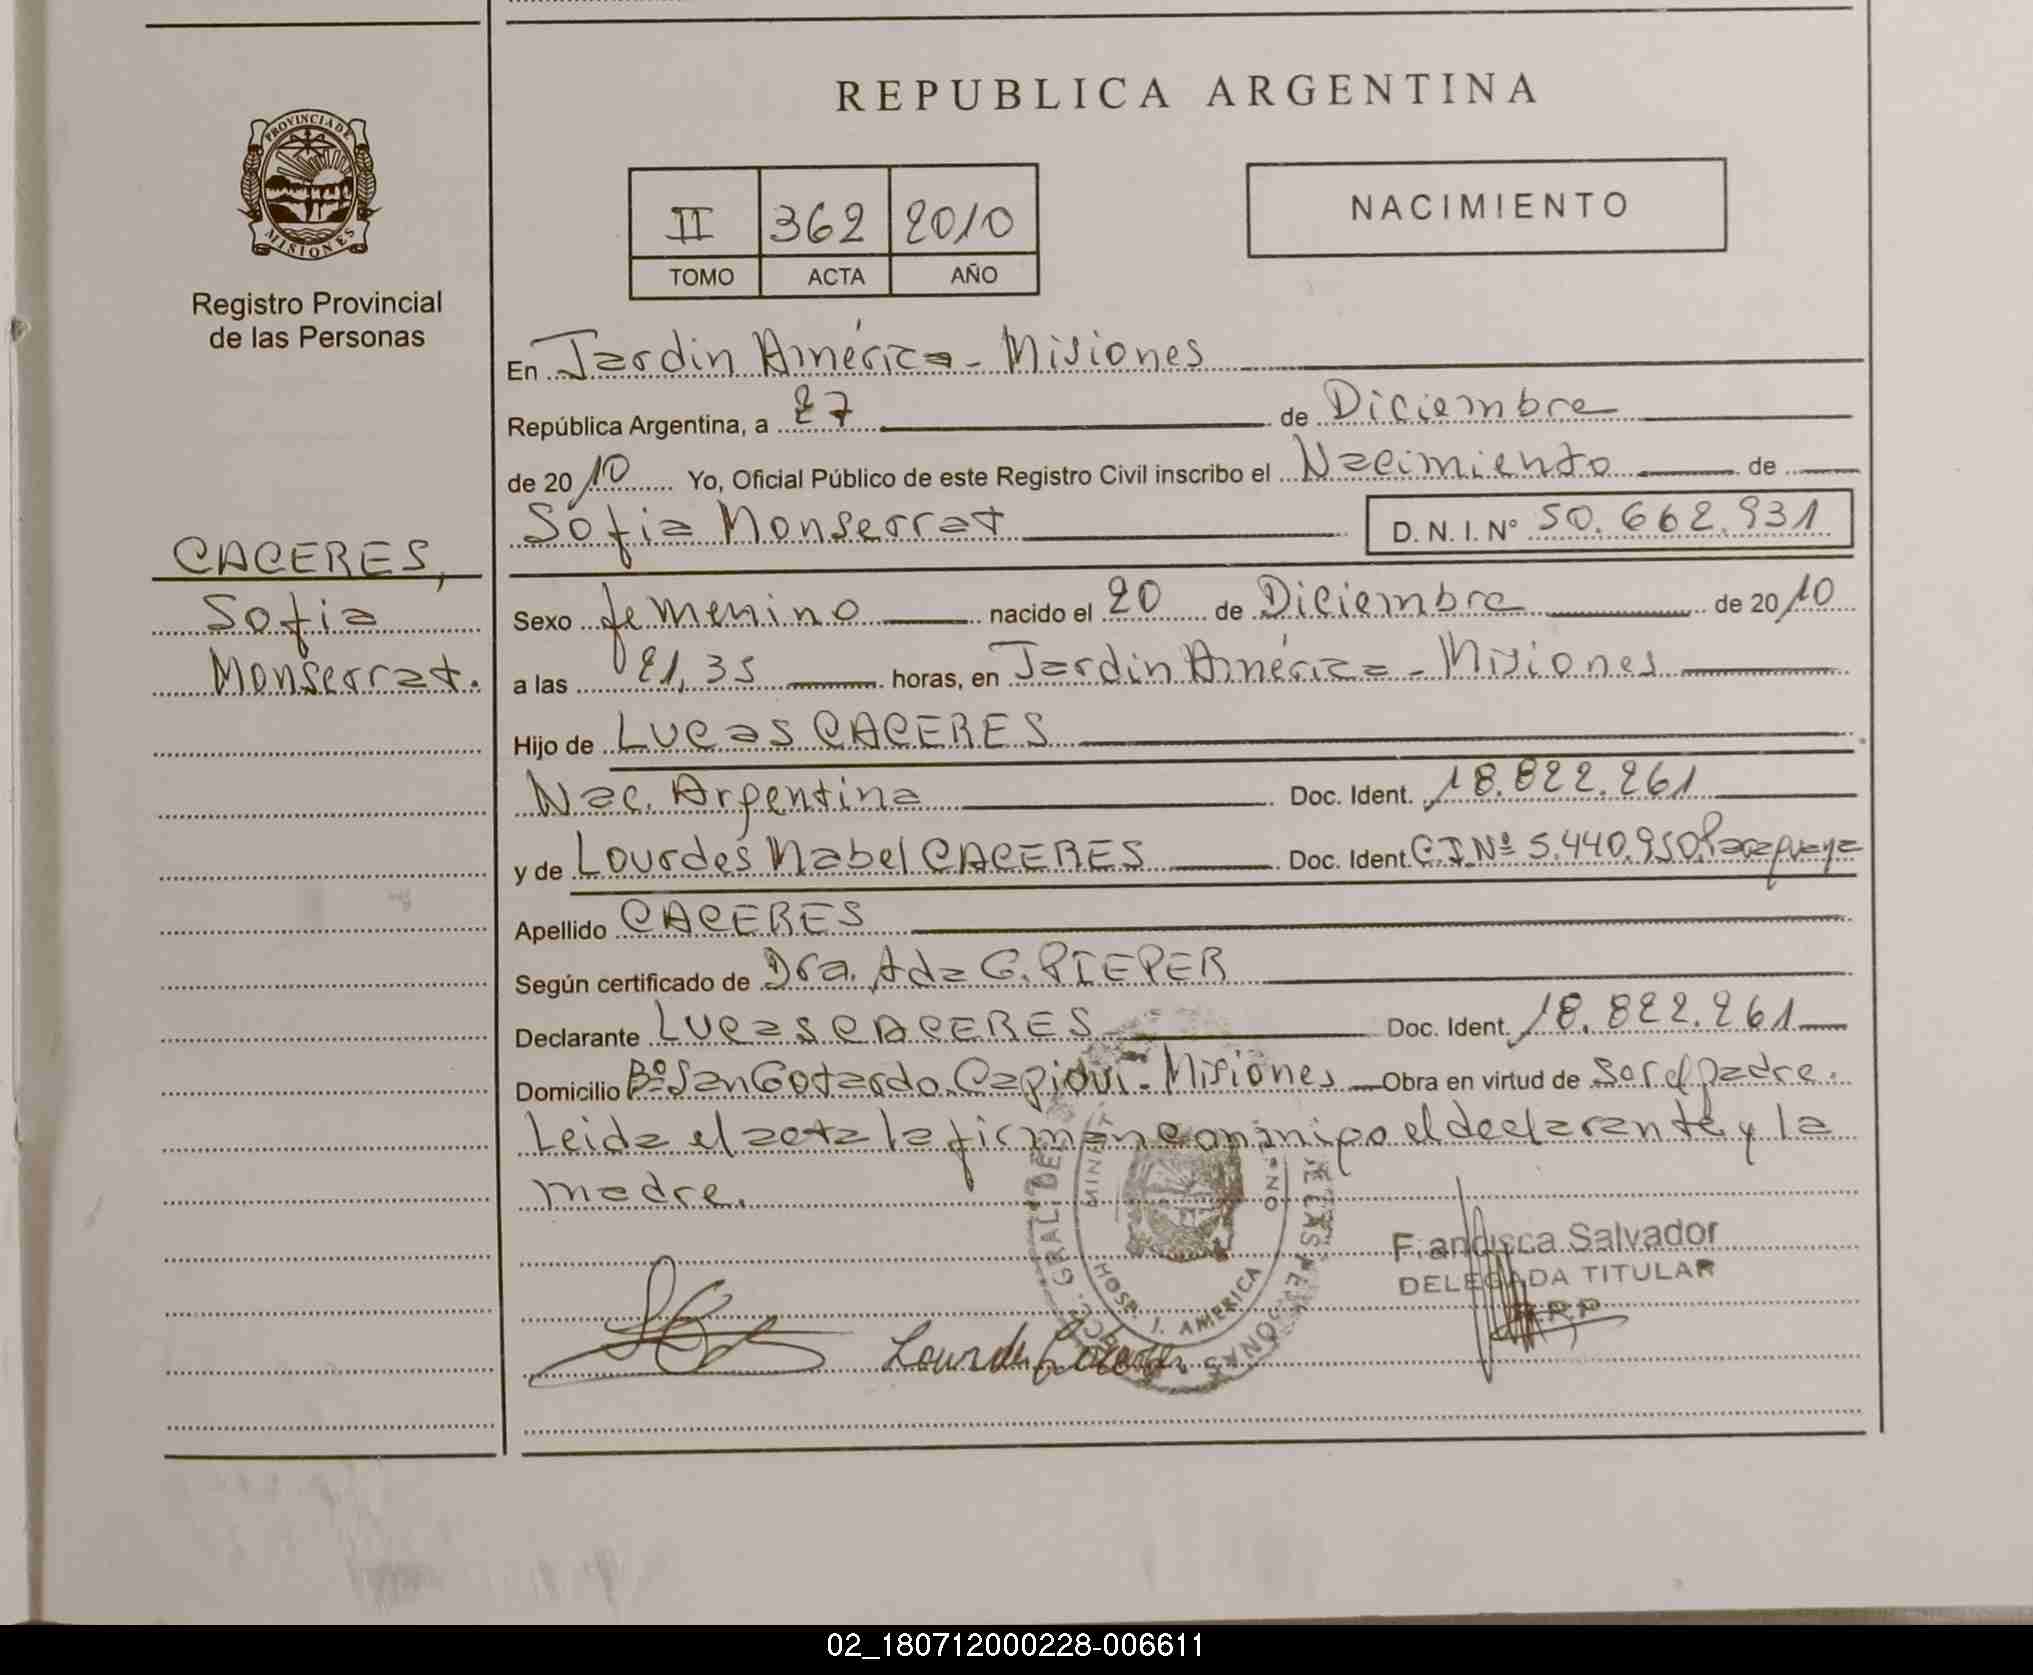 REPUBLICA ARGENTINA
PROVINCIA DE MISIONES
Registro Provincial
de las Personas
II 362 2010
TOMO ACTA AÑO
NACIMIENTO
En Jardin América - Misiones
República Argentina, a 27 de Diciembre
de 2010 Yo, Oficial Público de este Registro Civil inscribo el Nacimiento de
Sofia Monserrat D. N. I. N° 50.662.931
CACERES,
Sofia
Monserrat.
Sexo femenino nacido el 20 de Diciembre de 2010
a las 21,35 horas, en Jardin América - Misiones
Hijo de Lucas CACERES
Nac. Argentina Doc. Ident. 18.822.261
y de Lourdes Mabel CACERES Doc. Ident. C.I.Nº 5.440.950 Paraguaya
Apellido CACERES
Según certificado de Dra. Ada G. PIEPER
Declarante Lucas CACERES Doc. Ident. 18.822.261
Domicilio Bº San Gotardo. Capiovi - Misiones Obra en virtud de Ser el padre.
Leida el acta la firman conmigo el declarante y la
madre.
Francisca Salvador
DELEGADA TITULAR
R.R.P
Lourdes Caceres
HOSP. J. AMERICA
02_180712000228-006611